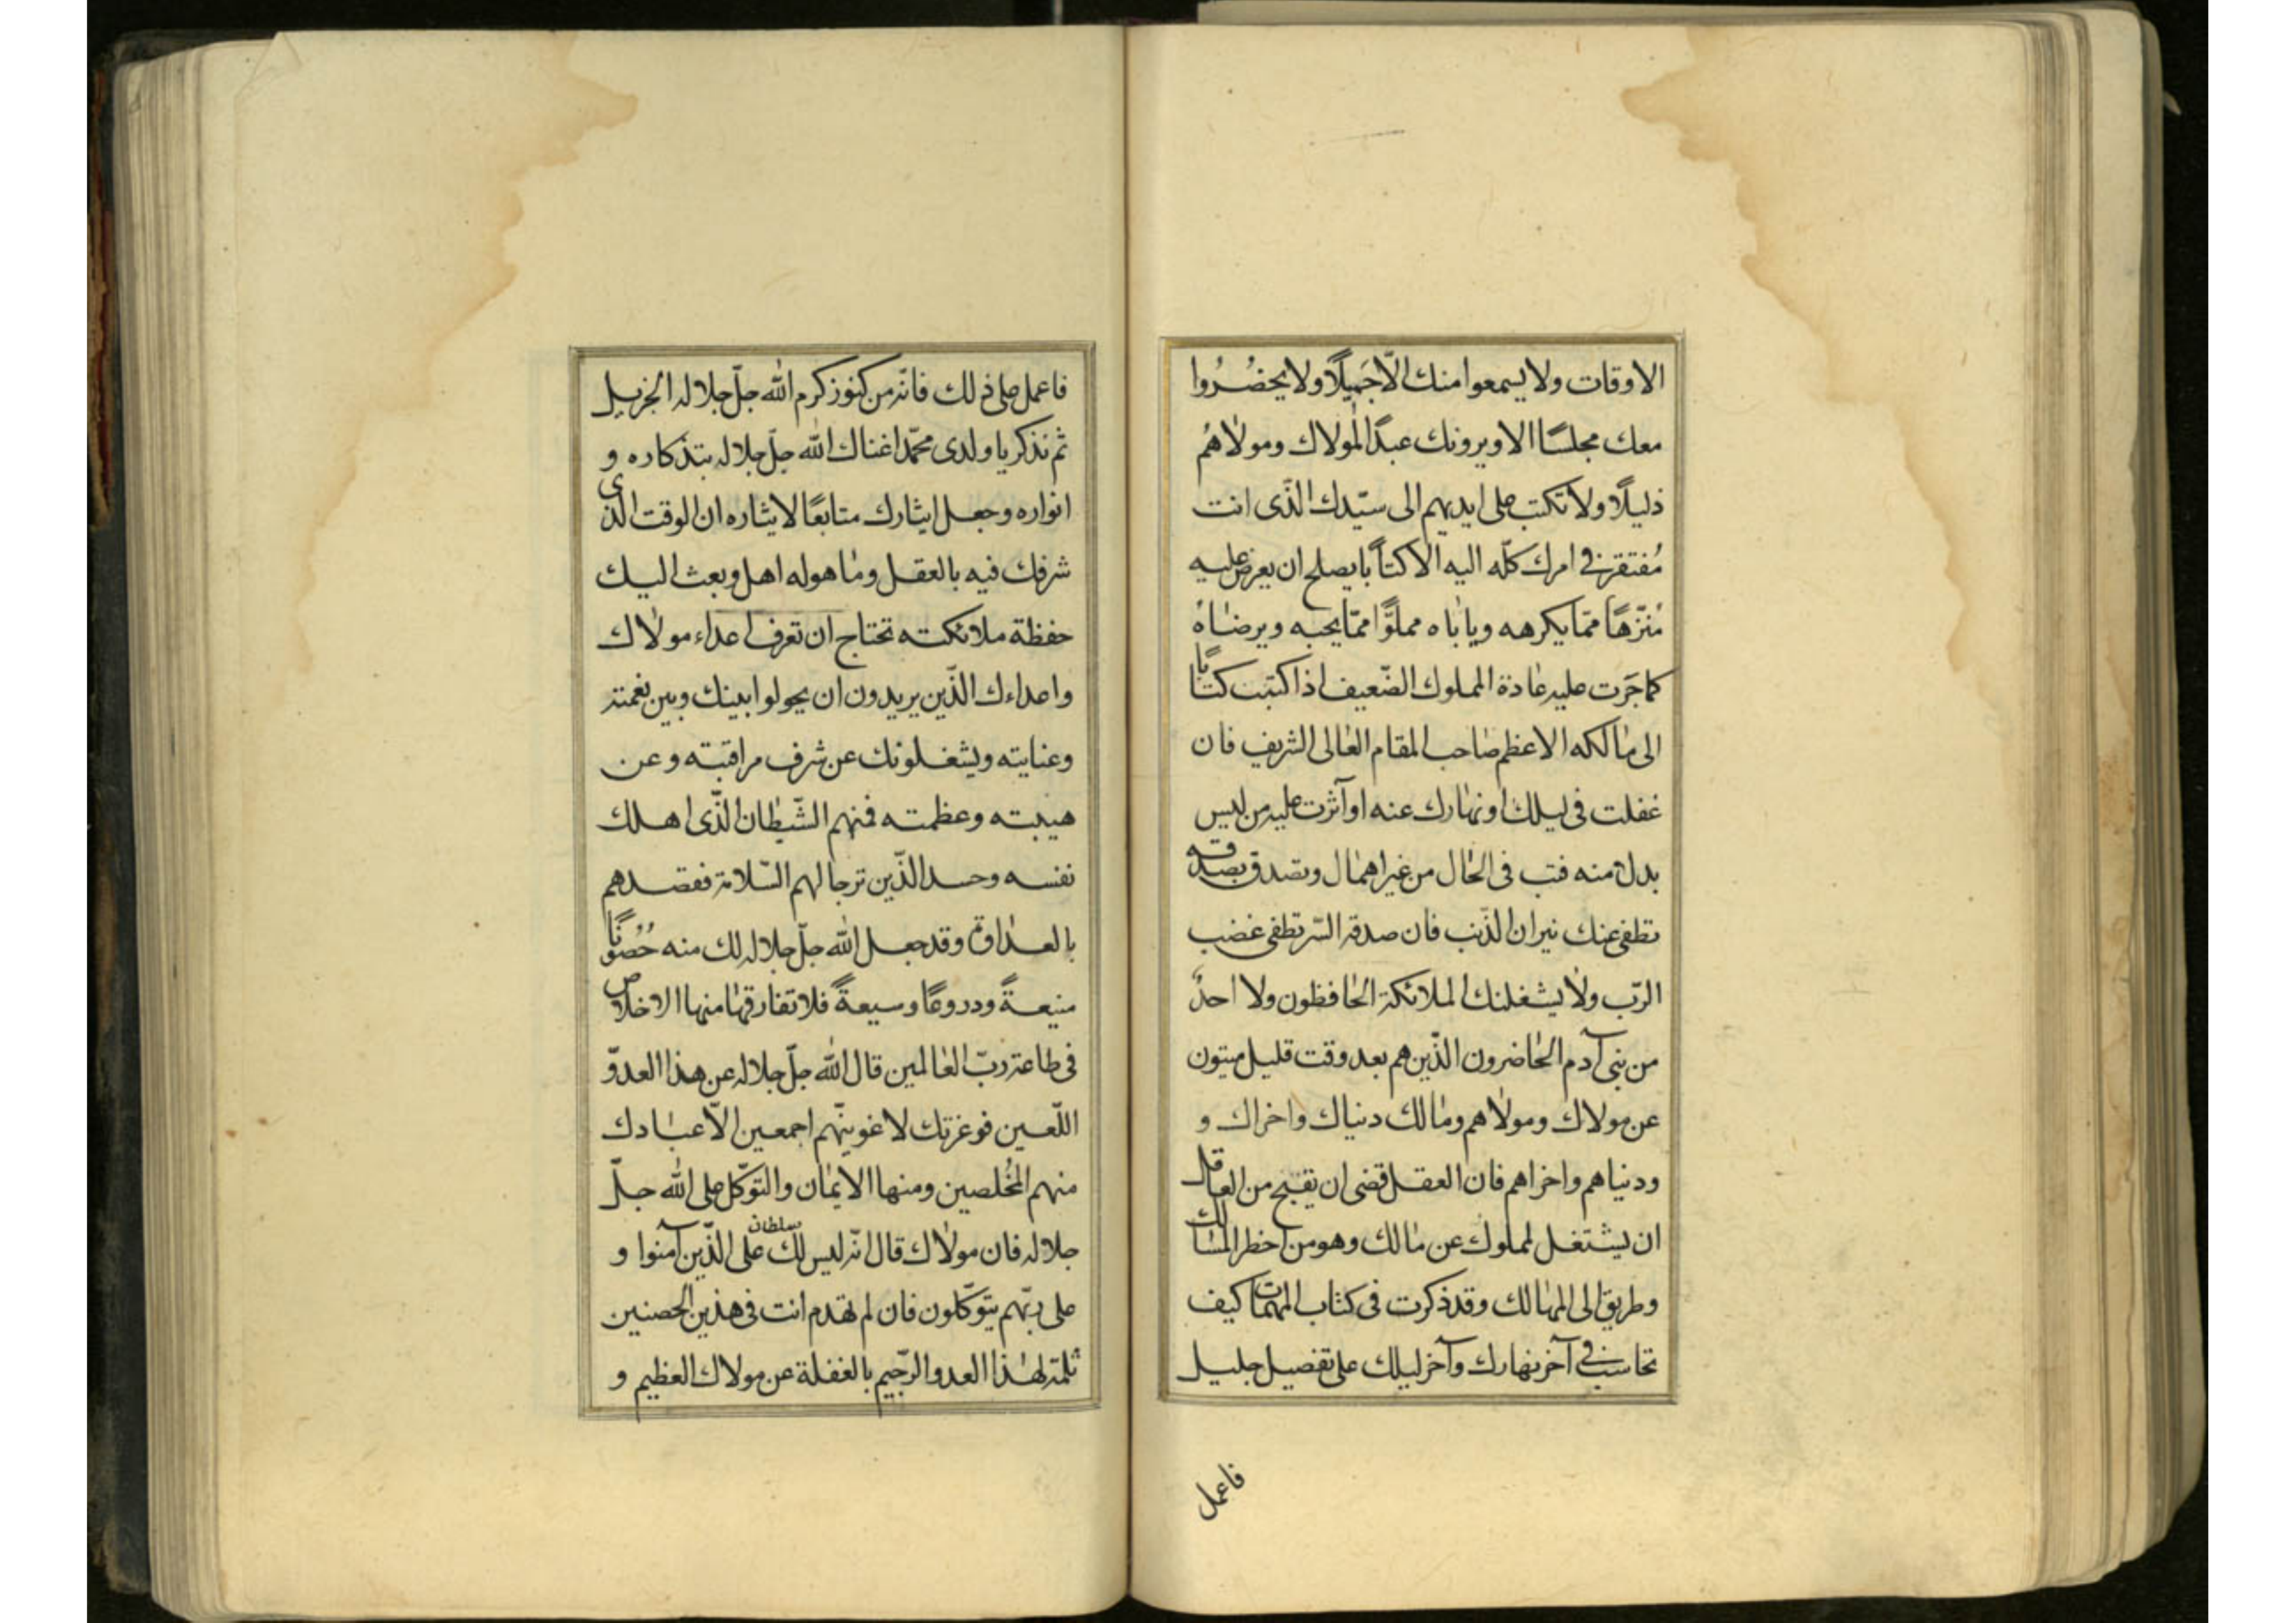 الاوقات ولا يسمعوا منك الّا جَميلًا ولا يحضُرُوا
معك مجلسًا الا ويرونك عبدًا لمولاك ومولاهم
ذليلًا ولا تكتب على ايديهم الى سيّدك الذّى انت
مُفتقر فى امرك كلّه اليه الا كتاًبا يصلح ان يعرض عليه
مُنزّهًا ممّا يكرهه وياباه مملوًّا ممّا يحبه ويرضاهُ
كما جَرت عليه عادة المملوك الضّعيف اذا كتبت كتابًا
الى مالكه الاعظم صاحب المقام العالى الشريف فان
غفلت فى ليلك او نهارك عنه او آثرت عليه من ليس
بدل منه فتب فى الحال من غير اهمال وتصدق بصدقه
تطفى عنك نيران الذّنب فان صدقة السّر تطفى غضب
الربّ ولا يشغلنك الملائكة الحافظون ولا احدٌ
من بنى آدم الحاضرون الذّين هم بعد وقت قليل ميتون
عن مولاك ومولاهم ومالك دنياك واخراك و
ودنياهم واخراهم فان العقل قضى ان يقبح من العاقل
ان يشتغل لمملوك عن مالك وهو من اخطر المسالك
وطريق الى المهالك وقد ذكرت فى كتاب المهمات كيف
تحاسب فى آخر نهارك وآخر ليلك على تفصيل جليل
فاعمل
فاعمل على ذلك فانّه من كنوز كرم الله جلّ جلاله الجزيل
ثم تذكر يا ولدى محمّد اغناك الله جلّ جلاله بتذكاره و
انواره وجعل ايثارك متابعًا لايثاره ان الوقت الذى
شرفك فيه بالعقل وما هو له اهل وبعث اليك
حفظة ملائكته تحتاج ان تعرف اعداء مولاك
واعداءك الذّين يريدون ان يحولوا بينك وبين نعمته
وعنايته ويشغلونك عن شرف مراقبته وعن
هيبته وعظمته فمنهم الشّيطان الذّى اهلك
نفسه وحسد الذّين ترجا لهم السّلامة فقصدهم
بالعداوة وقد جعل الله جلّ جلاله لك منه حُصُونًا
منيعةً ودروعًا وسيعةً فلا تفارقها منها الاخلاص
فى طاعة ربّ العالمين قال الله جلّ جلاله عن هذا العدوّ
اللّعين فوعزتك لاغوينّهم اجمعين الّا عبادك
منهم المُخلصين ومنها الايمان والتوّكل على الله جلّ
جلاله فان مولاك قال انّه ليس لك سلطان على الذّين آمنوا و
على ربّهم يتوّكلون فان لم تهدم انت فى هذين الحصنين
ثلمة لهذا العدو الرّجيم بالغفلة عن مولاك العظيم و